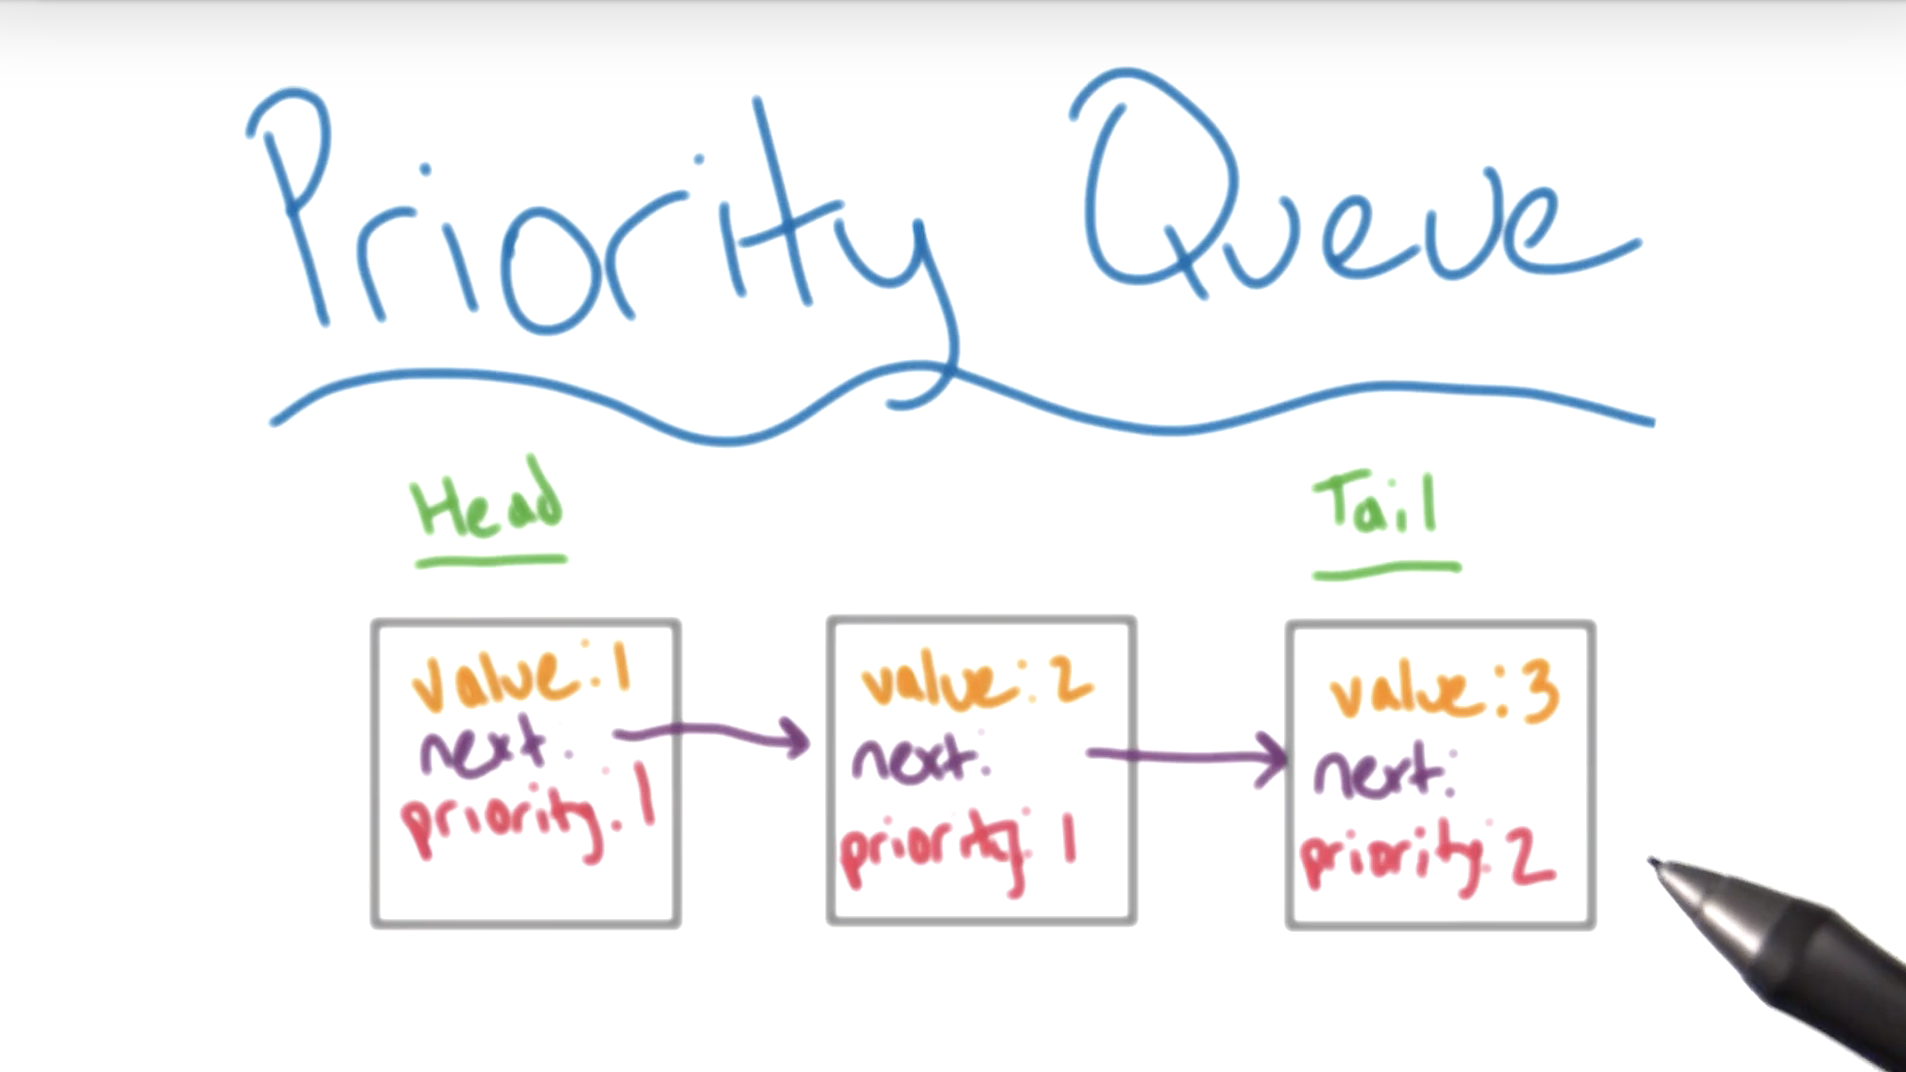 Priority Queue
Head
Tail
value: 1
next:
priority: 1
value: 2
next:
priority: 1
value: 3
next:
priority: 2